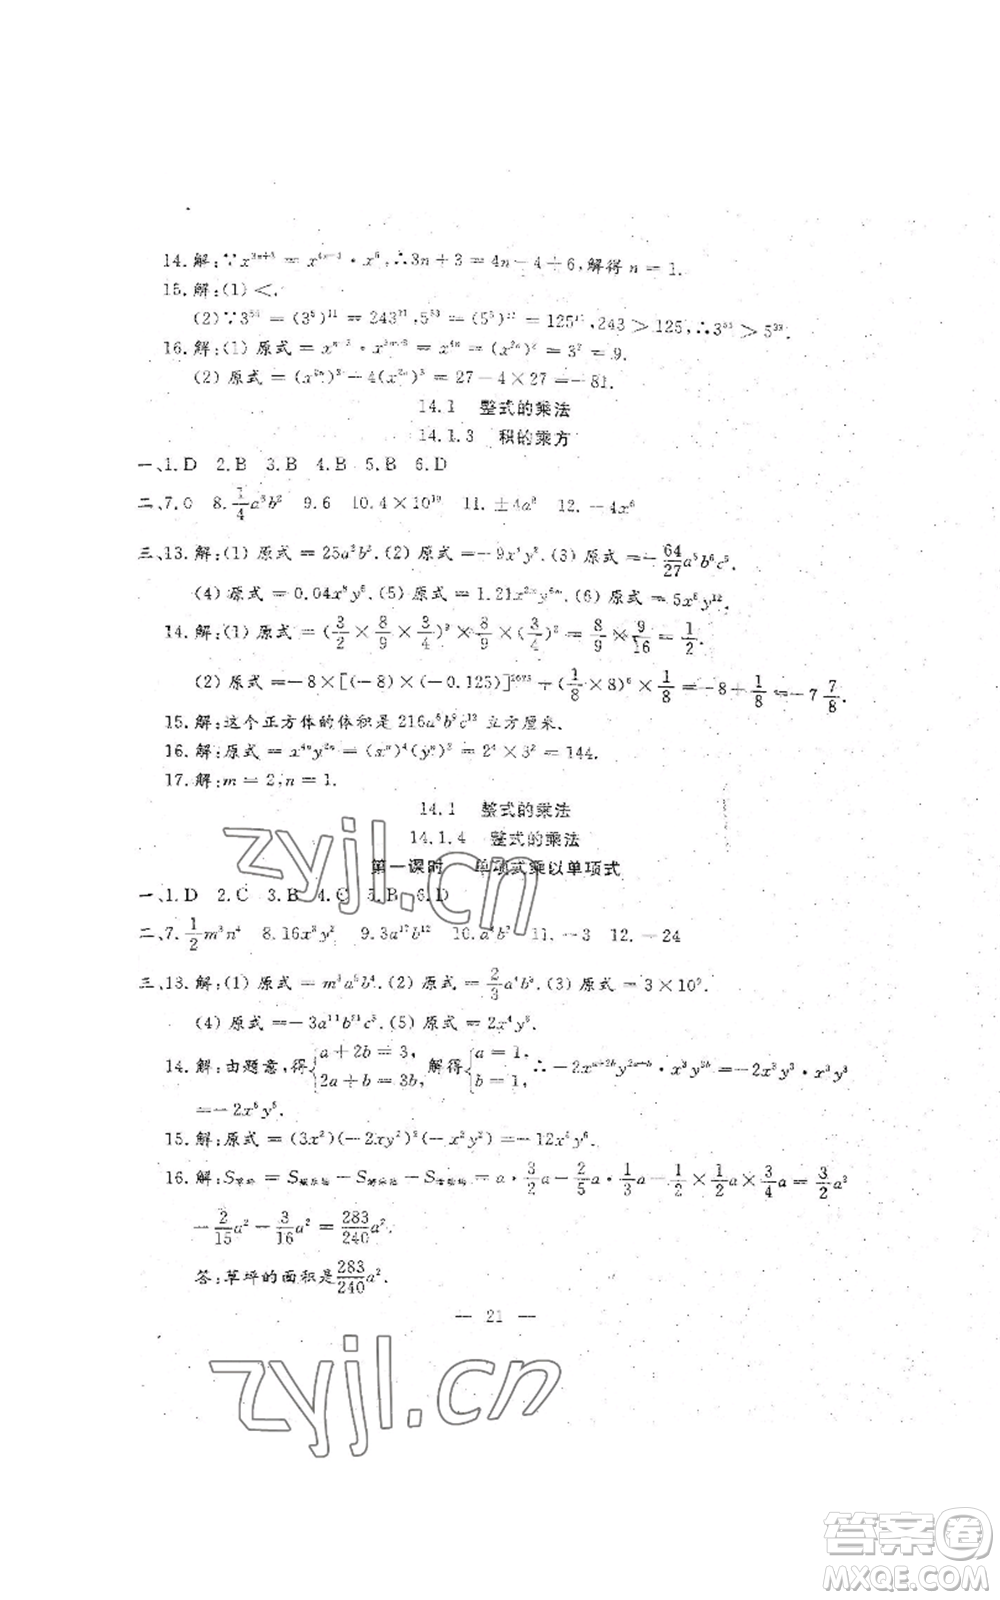 14.解:∵x³ⁿ⁺³=x⁴ⁿ⁻⁴·x⁶,∴3n+3=4n-4+6,解得n=1.
15.解:(1)<.
(2)∵3⁵⁵=(3⁵)¹¹=243¹¹,5³³=(5³)¹¹=125¹¹,243>125,∴3⁵⁵>5³³.
16.解:(1)原式= =x⁴ⁿ=(x²ⁿ)²=3²=9.
(2)原式=(x²ⁿ)³-4(x²ⁿ)³=27-4×27=-81.
14.1 整式的乘法
14.1.3 积的乘方
一、1.D 2.B 3.B 4.B 5.B 6.D
二、7.0 8. 9.6 10.4×10¹⁰ 11.±4a⁸ 12.-4x⁶
三、13.解:(1)原式=25a²b².(2)原式= (3)原式=
(4)原式=0.04x⁸y⁶.(5)原式= (6)原式=5x⁶y¹².
14.解:(1)原式=(3/2×8/9×3/4)²×8/9×(3/4)²=8/9×9/16=1/2.
(2)原式=-8×[(-8)×(-0.125)] +(1/8×8)⁶×1/8=-8+1/8=-7 7/8.
15.解:这个正方体的体积是216a⁶b⁹c¹²立方厘米.
16.解:原式=x⁴ⁿy²ⁿ=(xⁿ)⁴(yⁿ)²=2⁴×3²=144.
17.解:m=2,n=1.
14.1 整式的乘法
14.1.4 整式的乘法
第一课时 单项式乘以单项式
一、1.D 2.C 3.B 4.C 5.B 6.D
二、7.1/2m³n⁴ 8.16x³y² 9.3a¹⁷b¹² 10. 11.-3 12.-24
三、13.解:(1)原式= (2)原式= (3)原式=3×10⁹.
(4)原式= (5)原式=2x⁴y⁸.
14.解:由题意,得{a+2b=3, 2a+b=3b, 解得{a=1, b=1, ∴-2xᵃ⁺²ᵇy²ᵃ⁺ᵇ·x³y³ᵇ=-2x³y³·x³y³
=-2x⁶y⁶.
15.解:原式=(3x²)(-2xy²)²(-x²y²)=-12x⁶y⁶.
16.解:S草坪= =a·3/2a-2/5a·1/3a-1/2×1/2a×3/4a=3/2a²
-2/15a²-3/16a²=283/240a².
答:草坪的面积是283/240a².
— 21 —
zyjl.cn
zyjl.cn
答案卷
MXQE.COM